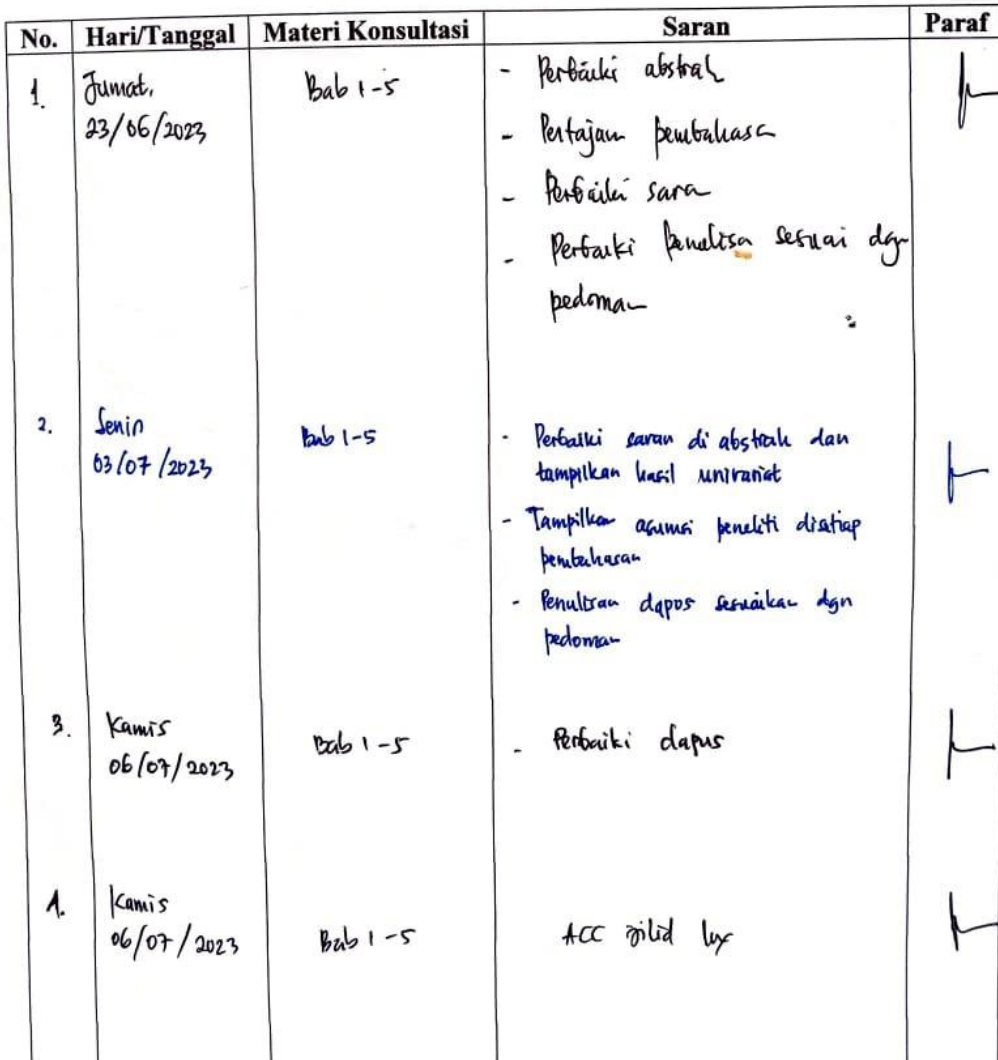 No. Hari/Tanggal Materi Konsultasi Saran Paraf
1. Jumat, Bab 1-5 - Perbaiki abstrak
23/06/2023
- Pertajam pembahasa
- Perbaiki sara
- Perbaiki penulisa sesuai dgn
pedoman
2. Senin Bab 1-5 - Perbaiki saran di abstrak dan
03/07/2023 tampilkan hasil univariat
- Tampilkan asumsi peneliti disetiap
pembahasan
- Penulisan dapus sesuaikan dgn
pedoman
3. Kamis Bab 1-5 - Perbaiki dapus
06/07/2023
4. Kamis
06/07/2023 Bab 1-5 ACC jilid lux